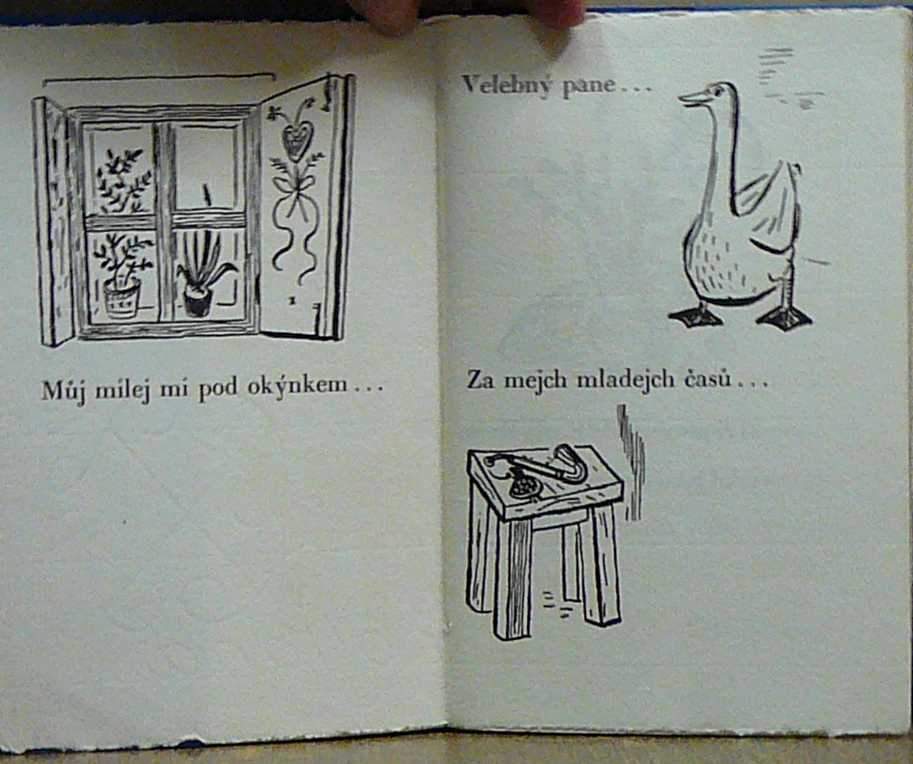 Můj milej mi pod okýnkem...
Velebný pane...
Za mejch mladejch časů...